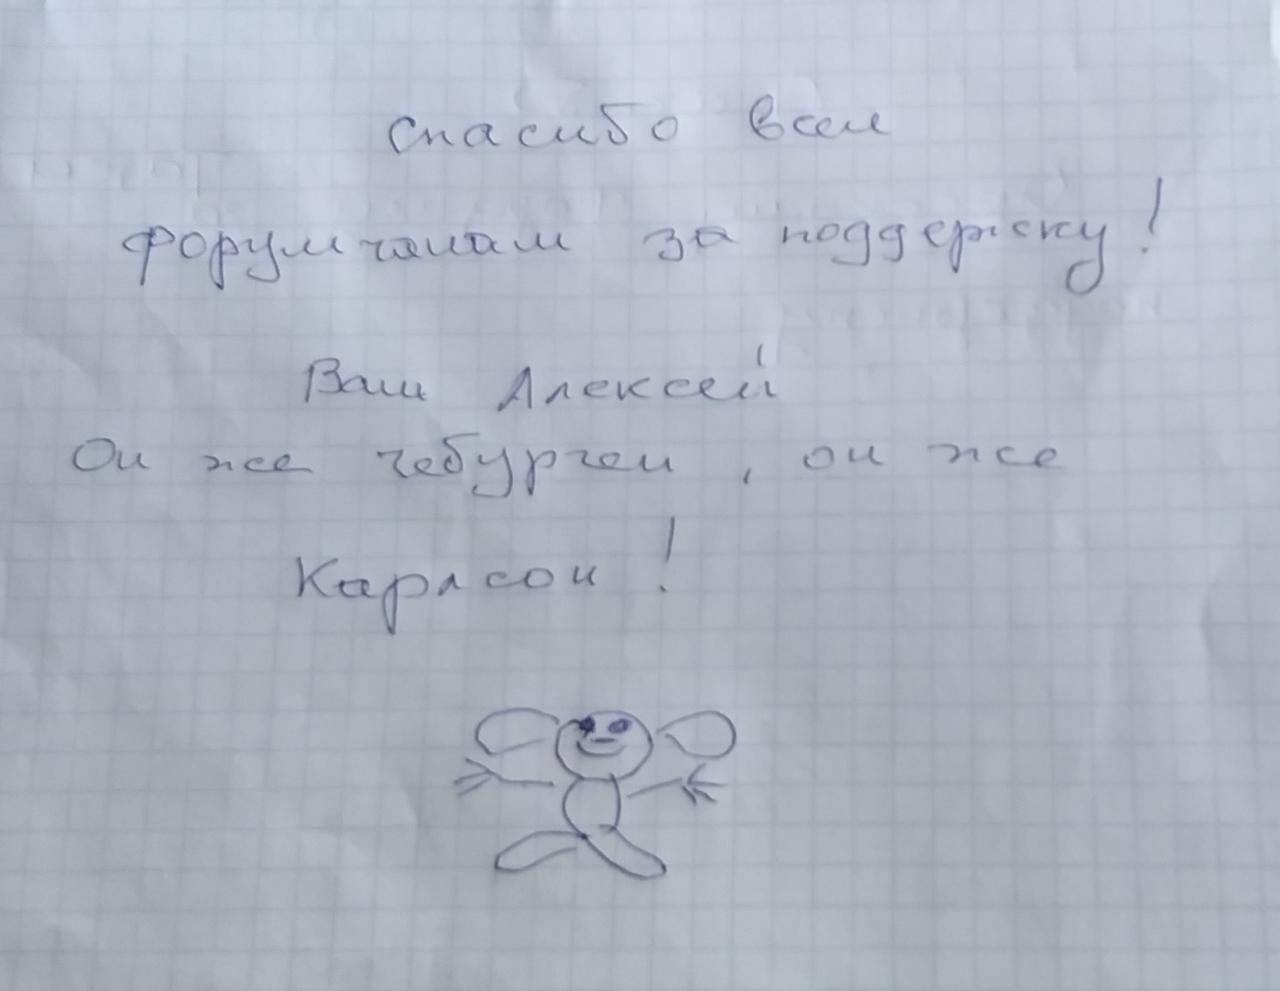 Спасибо всем
форумчанам за поддержку!
Ваш Алексей
Он же чебурген, он же
Карлсон!